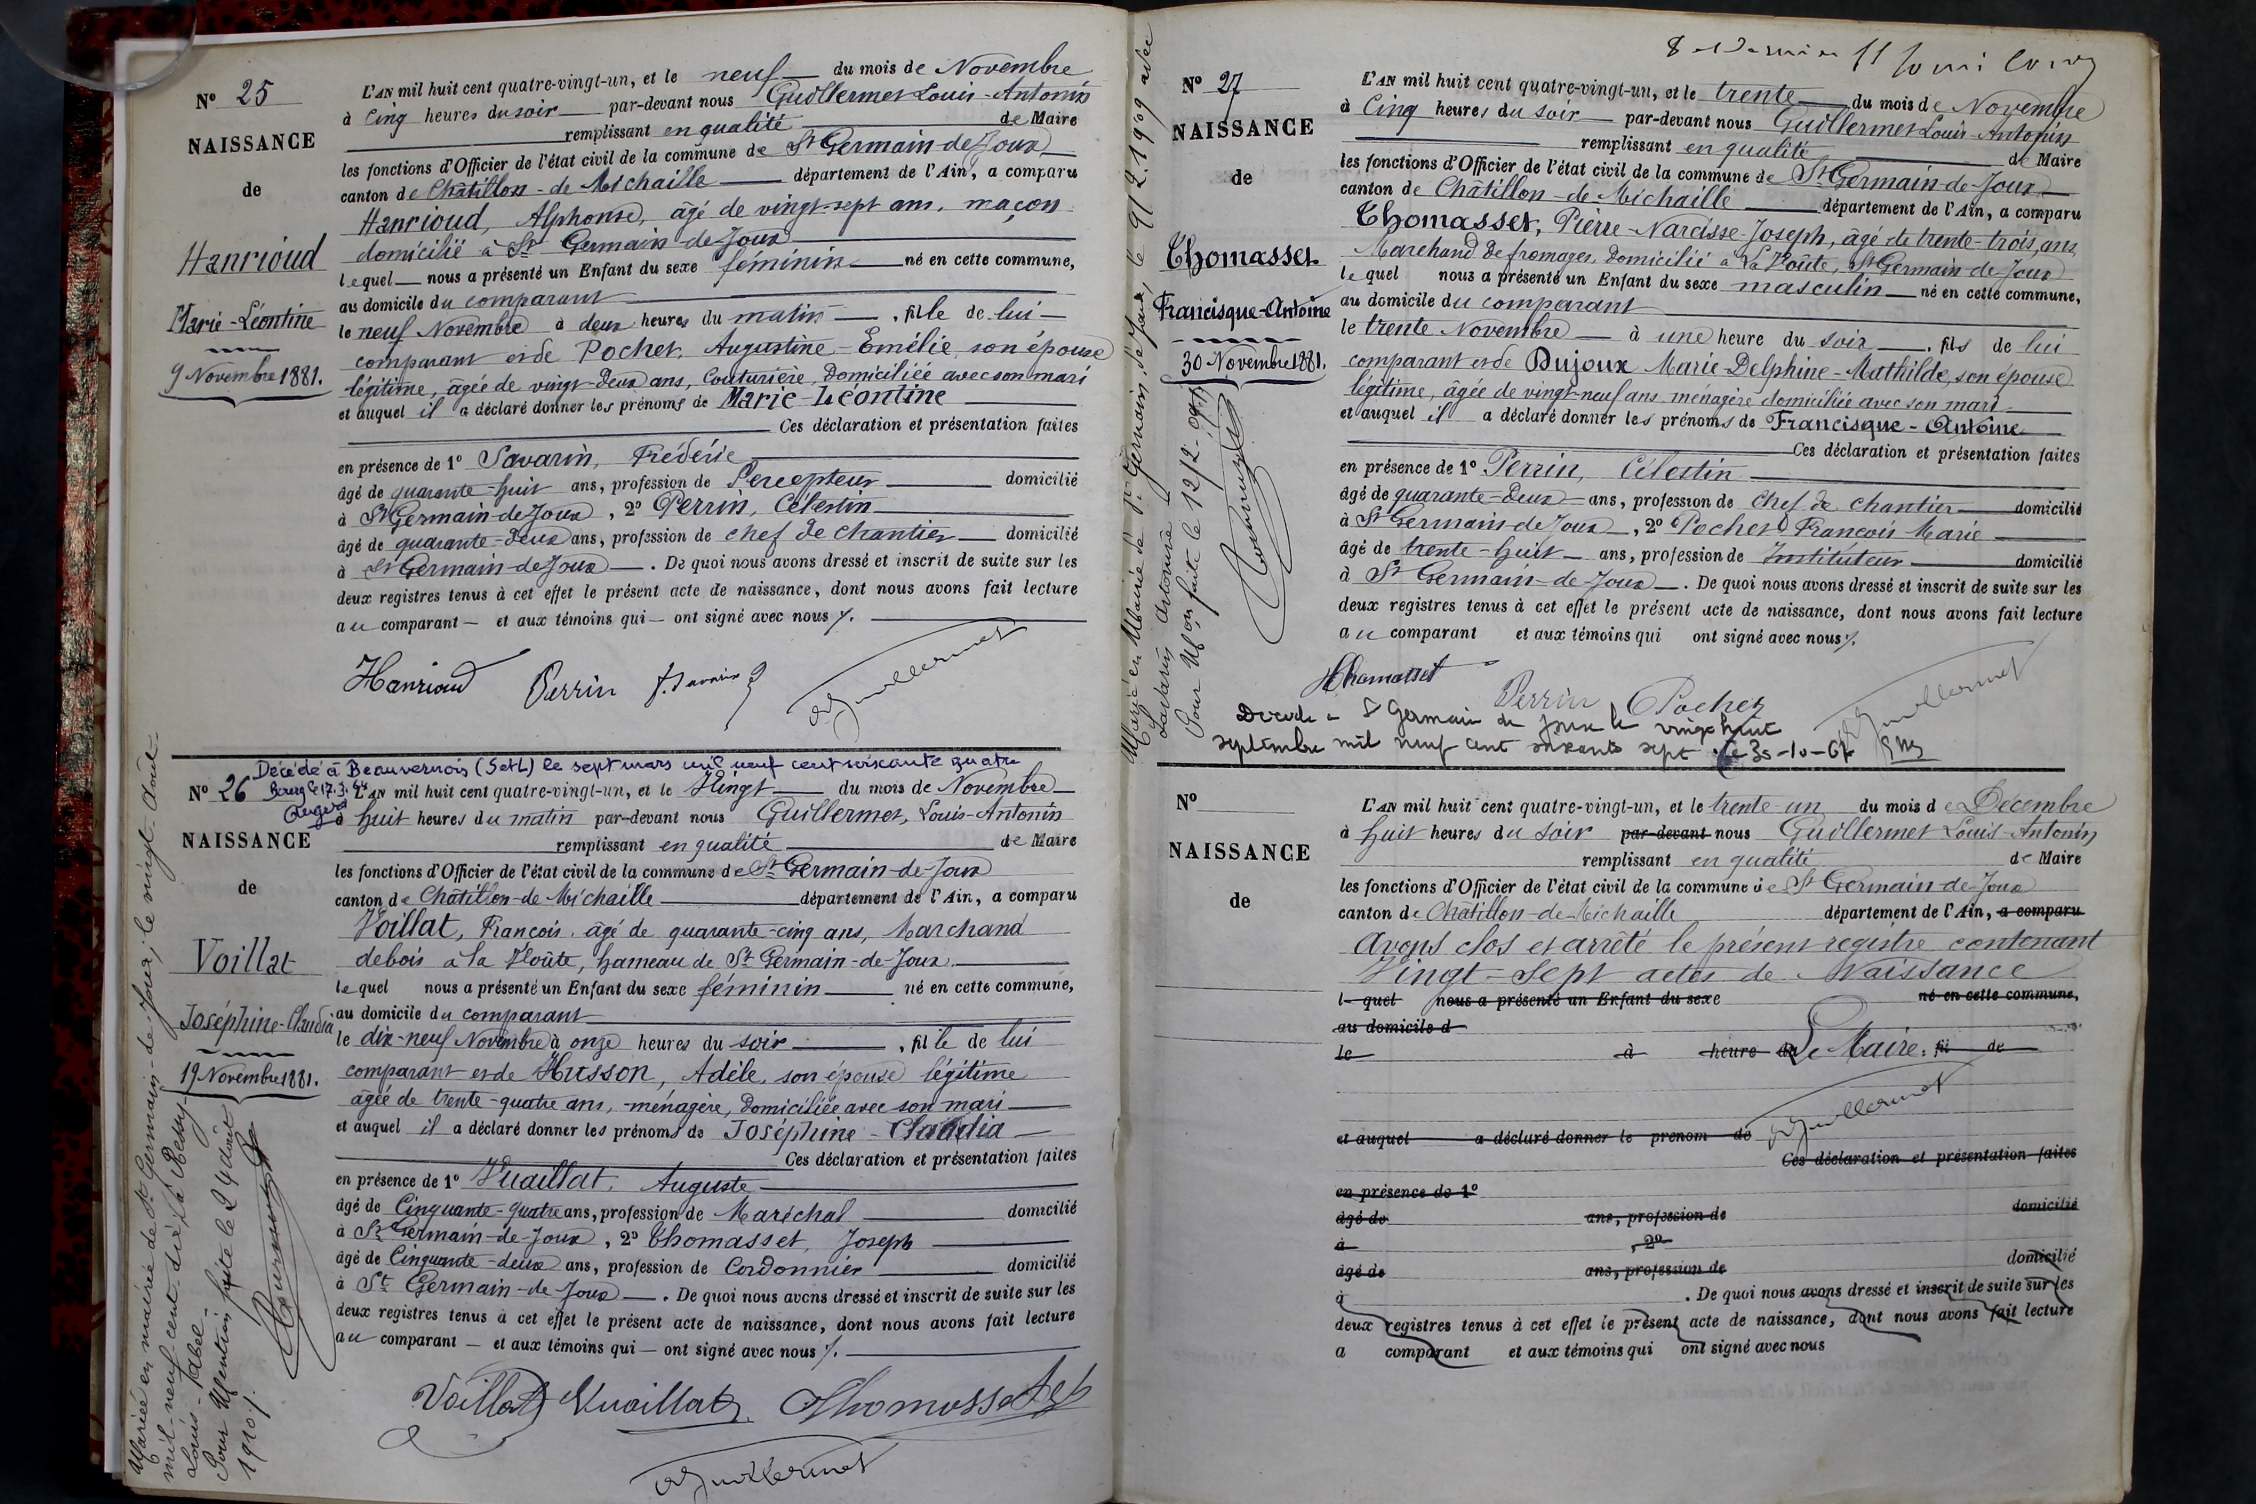 Nº 25
NAISSANCE
de
Hanrioud
Marie-Léontine
9 Novembre 1881.
L'AN mil huit cent quatre-vingt-un, et le neuf du mois de Novembre
à Cinq heures du soir par-devant nous Guillermet Louis-Antonin
remplissant en qualité de Maire
les fonctions d'Officier de l'état civil de la commune de St Germain-de-Joux
canton de Châtillon-de-Michaille département de l'Ain, a comparu
Hanrioud, Alphonse, âgé de vingt-sept ans, maçon
domicilié à St Germain-de-Joux
lequel nous a présenté un Enfant du sexe féminin né en cette commune,
au domicile du comparant
le neuf Novembre à deux heures du matin, fille de lui
comparant et de Pochet, Augustine-Emélie, son épouse
légitime, âgée de vingt-deux ans, Couturière, domiciliée avec son mari
et auquel il a déclaré donner les prénoms de Marie-Léontine
Ces déclaration et présentation faites
en présence de 1º Savarin, Frédéric
âgé de quarante-huit ans, profession de Percepteur domicilié
à St Germain-de-Joux, 2º Perrin, Célestin
âgé de quarante-deux ans, profession de chef de chantier domicilié
à St Germain-de-Joux. De quoi nous avons dressé et inscrit de suite sur les
deux registres tenus à cet effet le présent acte de naissance, dont nous avons fait lecture
au comparant et aux témoins qui ont signé avec nous ./.
Hanrioud Perrin f. Savarin AGuillermet
Décédé à Beauvernois (S et L) le sept mars mil neuf cent soixante quatre
Bourg le 17.3.64
Nº 26
NAISSANCE
de
Voillat
Joséphine-Claudia
19 Novembre 1881.
Mariée en mairie de St Germain-de-Joux, le vingt-août
mil-neuf-cent-dix, à
Louis-Abel-
Pour Mention faite le 24 août
1910 /.
L'AN mil huit cent quatre-vingt-un, et le Vingt du mois de Novembre
à huit heures du matin par-devant nous Guillermet, Louis-Antonin
remplissant en qualité de Maire
les fonctions d'Officier de l'état civil de la commune de St Germain-de-Joux
canton de Châtillon-de-Michaille département de l'Ain, a comparu
Voillat, François, âgé de quarante-cinq ans, Marchand
de bois à la Voûte, hameau de St Germain-de-Joux
lequel nous a présenté un Enfant du sexe féminin né en cette commune,
au domicile du comparant
le dix-neuf Novembre à onze heures du soir, fille de lui
comparant et de Husson, Adèle, son épouse légitime
âgée de trente-quatre ans, ménagère, domiciliée avec son mari
et auquel il a déclaré donner les prénoms de Joséphine-Claudia
Ces déclaration et présentation faites
en présence de 1º Vuaillat, Auguste
âgé de Cinquante-quatre ans, profession de Maréchal domicilié
à St Germain-de-Joux, 2º Thomasset, Joseph
âgé de Cinquante-deux ans, profession de Cordonnier domicilié
à St Germain-de-Joux. De quoi nous avons dressé et inscrit de suite sur les
deux registres tenus à cet effet le présent acte de naissance, dont nous avons fait lecture
au comparant et aux témoins qui ont signé avec nous ./.
Voillat Vuaillat Thomasset
AGuillermet
8 et Dernier
Nº 27
NAISSANCE
de
Thomasset
Francisque-Antoine
30 Novembre 1881.
Marié en Mairie de St Germain de Joux, le 9/2.1909 avec
Savarin Antonine
Pour Mon faite le 12/2-09./.
L'AN mil huit cent quatre-vingt-un, et le trente du mois de Novembre
à Cinq heures du soir par-devant nous Guillermet Louis-Antonin
remplissant en qualité de Maire
les fonctions d'Officier de l'état civil de la commune de St Germain-de-Joux
canton de Châtillon-de-Michaille département de l'Ain, a comparu
Thomasset, Pierre-Narcisse-Joseph, âgé de trente-trois, ans,
Marchand de fromages, domicilié à La Voûte, St Germain-de-Joux
lequel nous a présenté un Enfant du sexe masculin né en cette commune,
au domicile du comparant
le trente Novembre à une heure du soir, fils de lui
comparant et de Dujoux Marie-Delphine-Mathilde, son épouse
légitime, âgée de vingt-neuf ans ménagère domiciliée avec son mari
et auquel il a déclaré donner les prénoms de Francisque-Antoine
Ces déclaration et présentation faites
en présence de 1º Perrin, Célestin
âgé de quarante-deux ans, profession de chef de chantier domicilié
à St Germain-de-Joux, 2º Pochet François Marie
âgé de trente-huit ans, profession de Instituteur domicilié
à St Germain-de-Joux. De quoi nous avons dressé et inscrit de suite sur les
deux registres tenus à cet effet le présent acte de naissance, dont nous avons fait lecture
au comparant et aux témoins qui ont signé avec nous ./.
Thomasset Perrin Pochet AGuillermet
Décédé à St Germain de Joux le vingt huit
septembre mil neuf cent soixante sept. le 30-10-67
Nº
NAISSANCE
de
L'AN mil huit cent quatre-vingt-un, et le trente-un du mois de Décembre
à huit heures du soir par-devant nous Guillermet Louis-Antonin
remplissant en qualité de Maire
les fonctions d'Officier de l'état civil de la commune de St Germain-de-Joux
canton de Châtillon-de-Michaille département de l'Ain, a comparu
avons clos et arrêté le présent registre contenant
Vingt-Sept actes de Naissance
l quel nous a présenté un Enfant du sexe né en cette commune,
au domicile d
le à heure du Le Maire, fil de
AGuillermet
et auquel a déclaré donner le prénom de
Ces déclaration et présentation faites
en présence de 1º
âgé de ans, profession de domicilié
à , 2º
âgé de ans, profession de domicilié
à . De quoi nous avons dressé et inscrit de suite sur les
deux registres tenus à cet effet le présent acte de naissance, dont nous avons fait lecture
a comparant et aux témoins qui ont signé avec nous